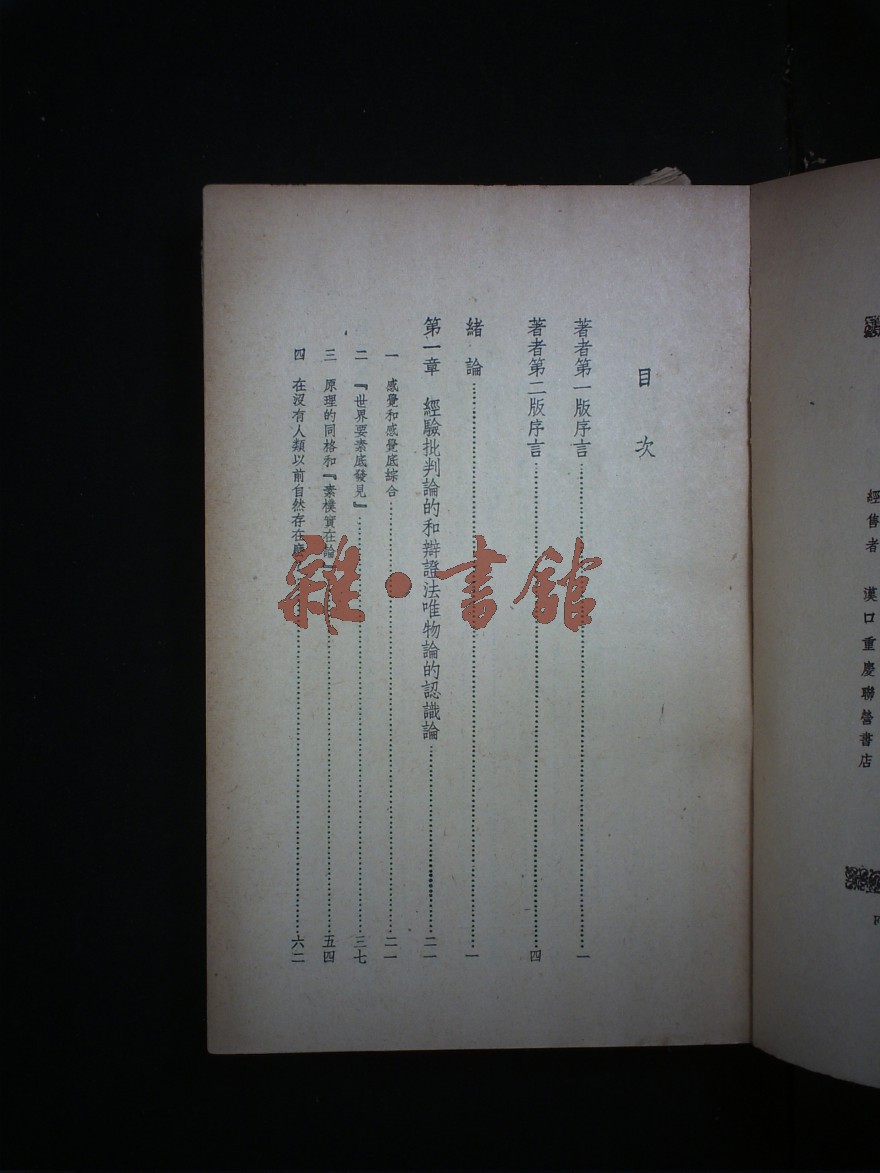 經售者 漢口重慶聯營書店
目次
著者第一版序言……一
著者第二版序言……四
緒論……一
第一章 經驗批判論的和辯證法唯物論的認識論……二一
一 感覺和感覺底綜合……二一
二 『世界要素底發見』……三七
三 原理的同格和『素樸實在論……五四
四 在沒有人類以前自然存在麼……六二
雜·書舘